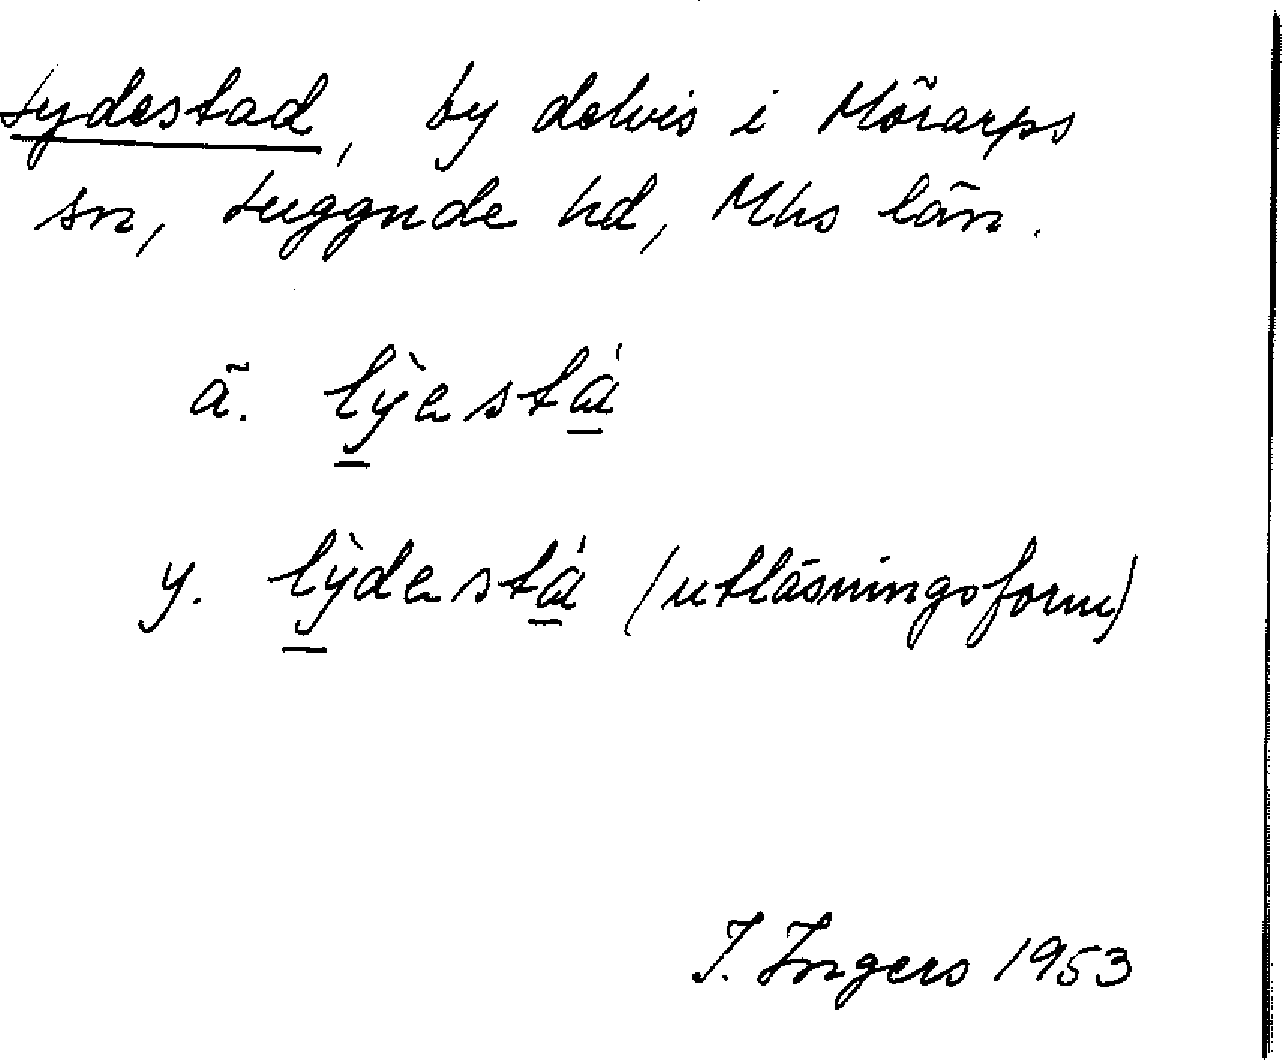 Lydestad, by delvis i Mörarps
sn, Luggude hd, Mhs län.
ä. lỳestá
y. lỳdestá (utläsningsform)
I. Ingers 1953